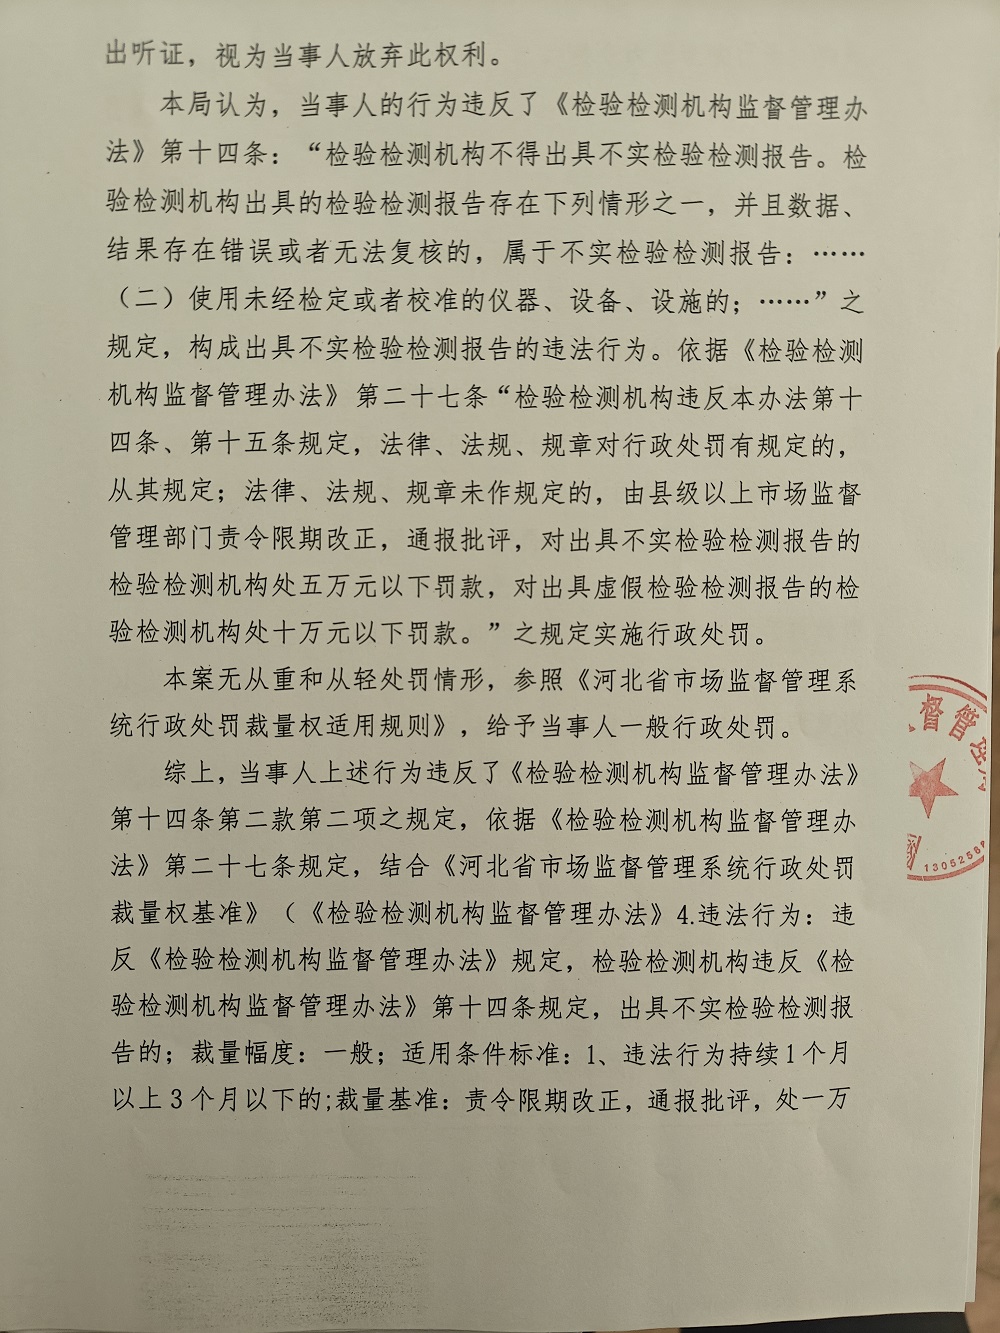 出听证，视为当事人放弃此权利。
本局认为，当事人的行为违反了《检验检测机构监督管理办
法》第十四条：“检验检测机构不得出具不实检验检测报告。检
验检测机构出具的检验检测报告存在下列情形之一，并且数据、
结果存在错误或者无法复核的，属于不实检验检测报告：……
（二）使用未经检定或者校准的仪器、设备、设施的；……”之
规定，构成出具不实检验检测报告的违法行为。依据《检验检测
机构监督管理办法》第二十七条“检验检测机构违反本办法第十
四条、第十五条规定，法律、法规、规章对行政处罚有规定的，
从其规定；法律、法规、规章未作规定的，由县级以上市场监督
管理部门责令限期改正，通报批评，对出具不实检验检测报告的
检验检测机构处五万元以下罚款，对出具虚假检验检测报告的检
验检测机构处十万元以下罚款。”之规定实施行政处罚。
本案无从重和从轻处罚情形，参照《河北省市场监督管理系
统行政处罚裁量权适用规则》，给予当事人一般行政处罚。
综上，当事人上述行为违反了《检验检测机构监督管理办法》
第十四条第二款第二项之规定，依据《检验检测机构监督管理办
法》第二十七条规定，结合《河北省市场监督管理系统行政处罚
裁量权基准》（《检验检测机构监督管理办法》4.违法行为：违
反《检验检测机构监督管理办法》规定，检验检测机构违反《检
验检测机构监督管理办法》第十四条规定，出具不实检验检测报
告的；裁量幅度：一般；适用条件标准：1、违法行为持续1个月
以上3个月以下的;裁量基准：责令限期改正，通报批评，处一万
督管
1305256